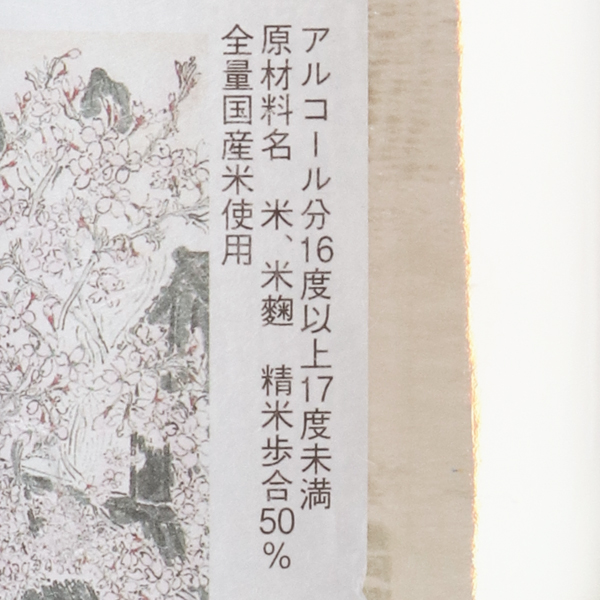 アルコール分16度以上17度未満
原材料名　米、米麴　精米歩合50%
全量国産米使用